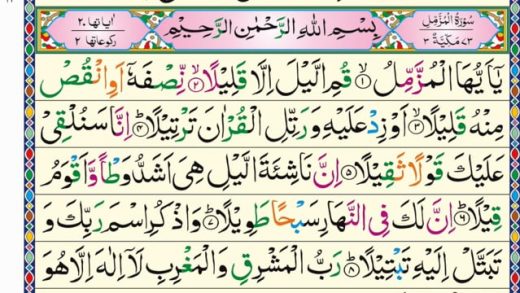 سُوْرَةُ الْمُزَّمِّلِ بِسْمِ اللهِ الرَّحْمٰنِ الرَّحِيْمِ اٰیاتها ٢٠
٧٣ مَكِّيَّةٌ ٣ رکوعاتها ٢
يٰۤاَيُّهَا الْمُزَّمِّلُ ۙ﴿١﴾ قُمِ الَّيْلَ اِلَّا قَلِيْلًا ۙ﴿٢﴾ نِّصْفَهٗۤ اَوِ انْقُصْ
مِنْهُ قَلِيْلًا ۙ﴿٣﴾ اَوْ زِدْ عَلَيْهِ وَ رَتِّلِ الْقُرْاٰنَ تَرْتِيْلًا ؕ﴿٤﴾ اِنَّا سَنُلْقِيْ
عَلَيْكَ قَوْلًا ثَقِيْلًا ﴿٥﴾ اِنَّ نَاشِئَةَ الَّيْلِ هِيَ اَشَدُّ وَطْاً وَّ اَقْوَمُ
قِيْلًا ؕ﴿٦﴾ اِنَّ لَكَ فِي النَّهَارِ سَبْحًا طَوِيْلًا ؕ﴿٧﴾ وَ اذْكُرِ اسْمَ رَبِّكَ وَ
تَبَتَّلْ اِلَيْهِ تَبْتِيْلًا ؕ﴿٨﴾ رَبُّ الْمَشْرِقِ وَ الْمَغْرِبِ لَاۤ اِلٰهَ اِلَّا هُوَ